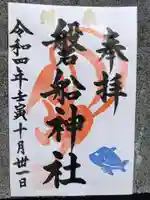 奉拝
磐船神社
令和四年壬寅十月卅一日